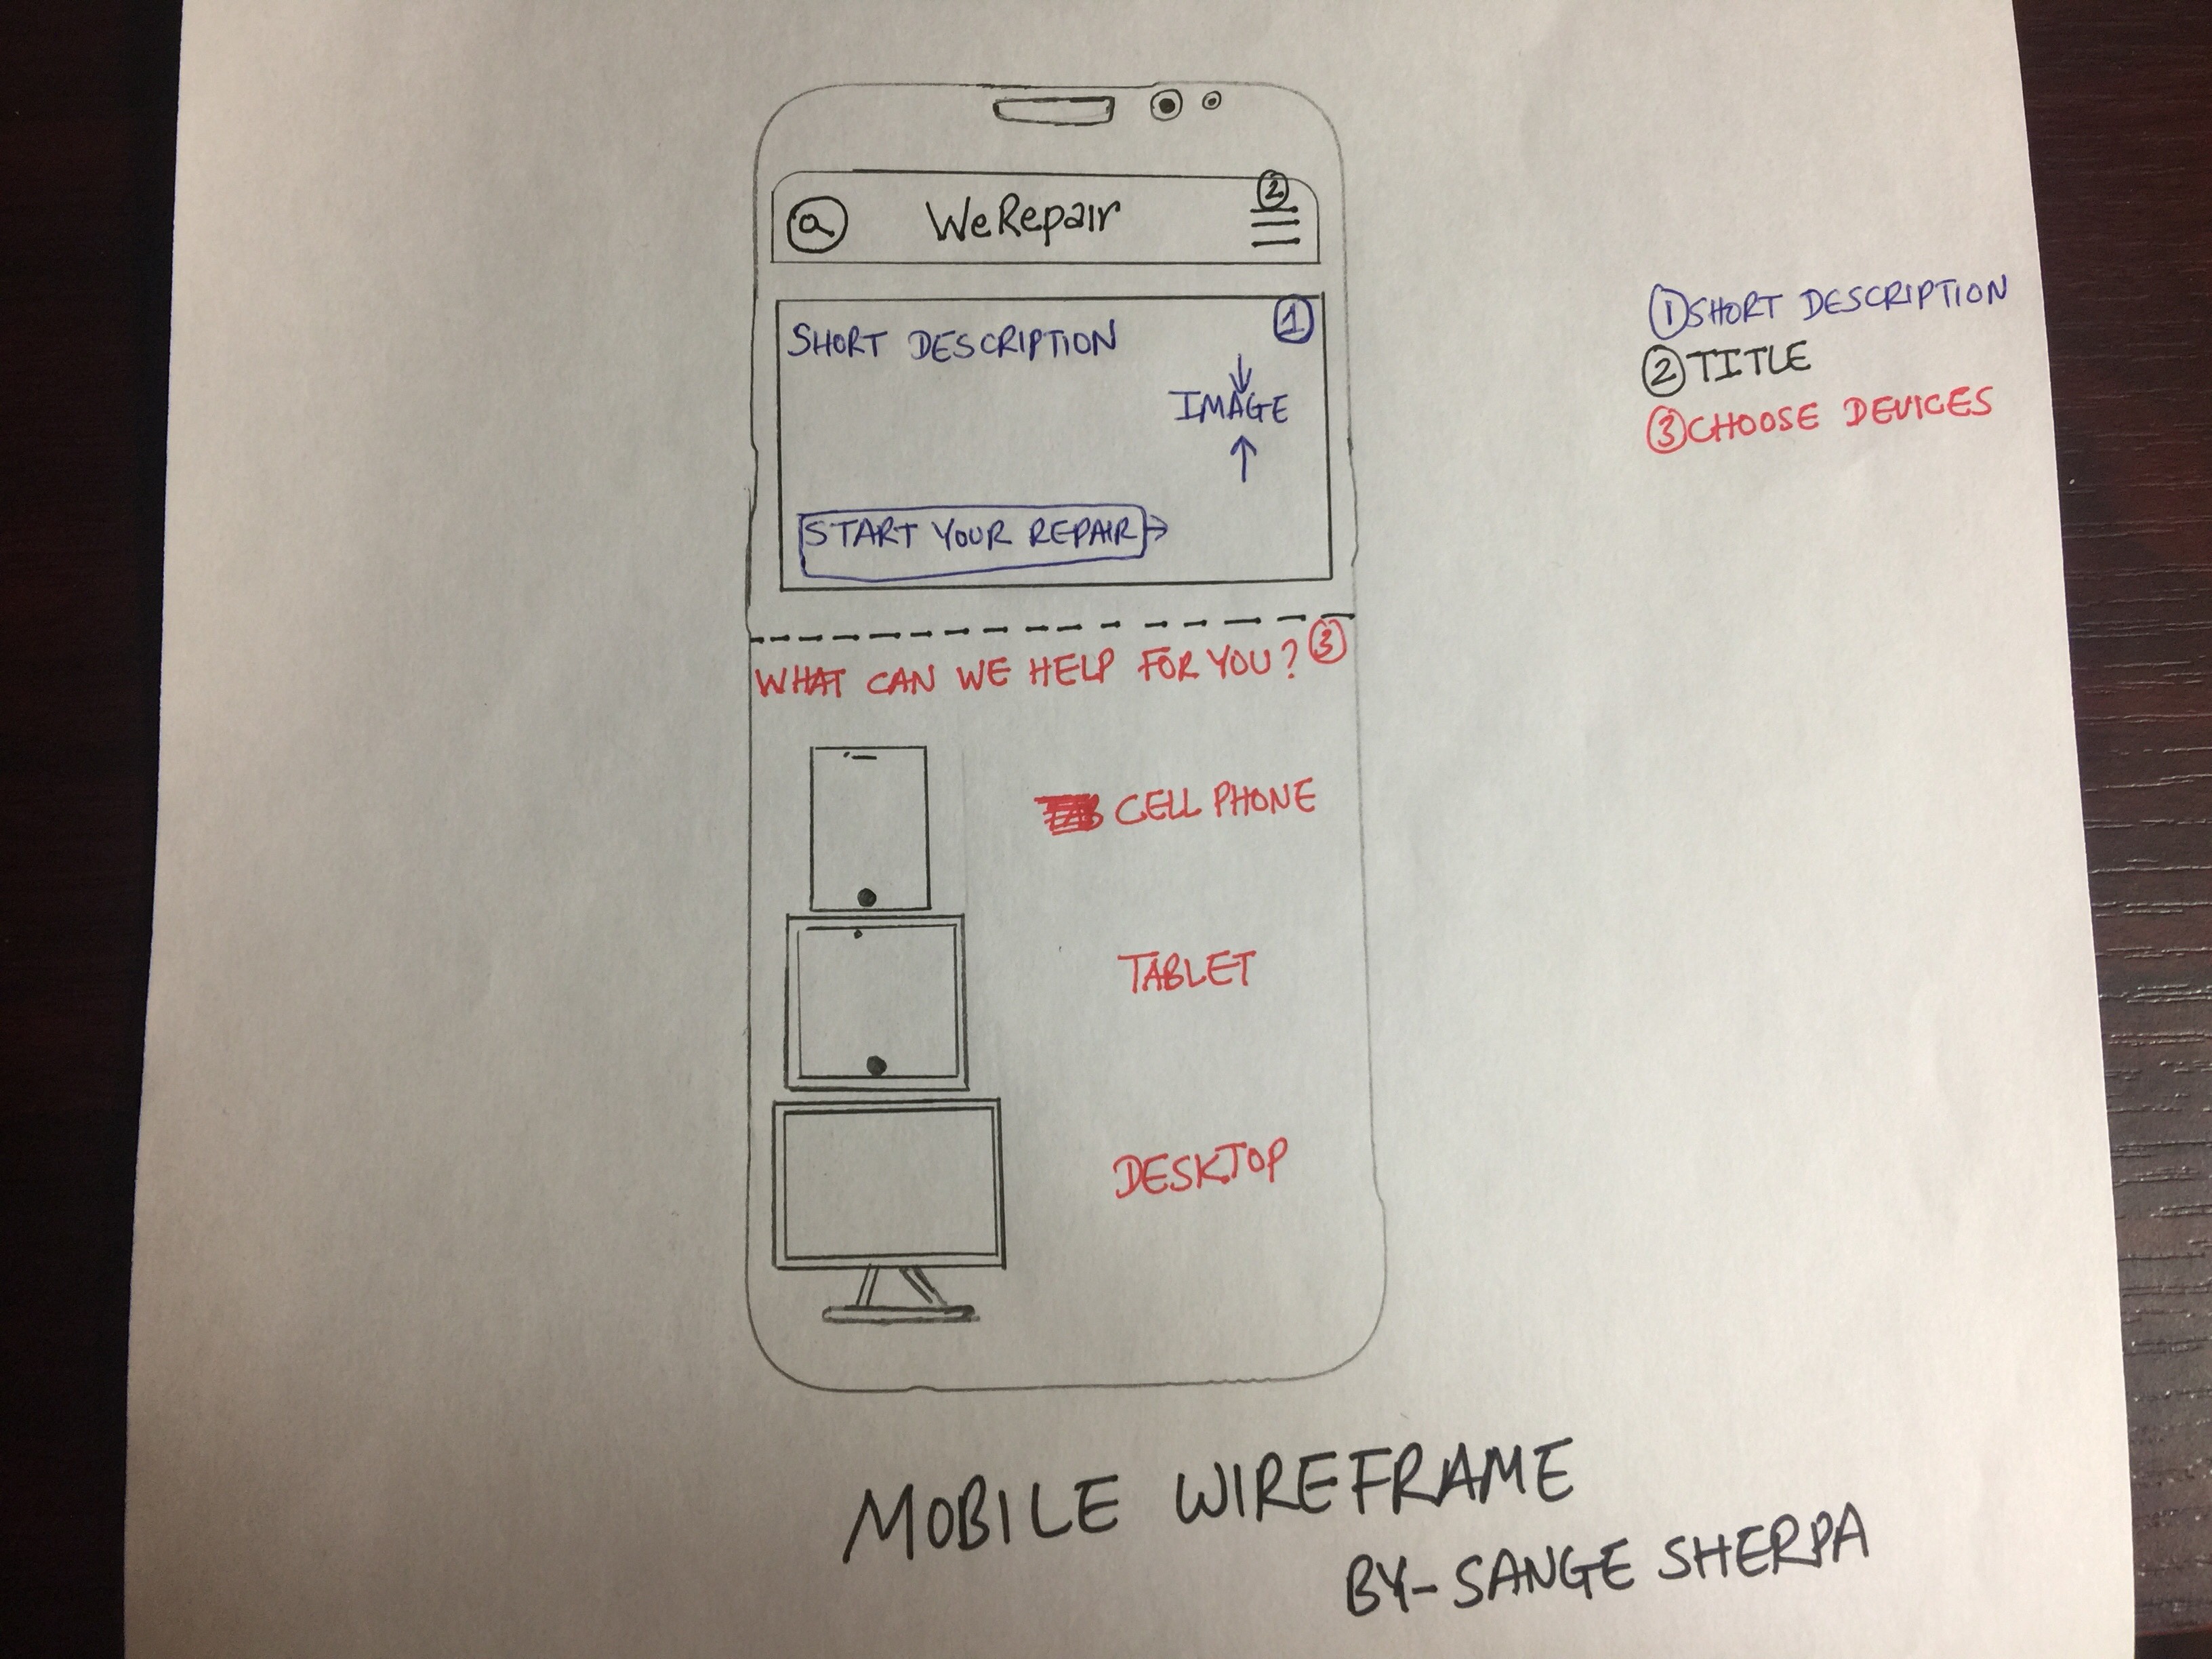 2
WeRepair
1
SHORT DESCRIPTION
IMAGE
START YOUR REPAIR
WHAT CAN WE HELP FOR YOU? 3
CELL PHONE
TABLET
DESKTOP
1 SHORT DESCRIPTION
2 TITLE
3 CHOOSE DEVICES
MOBILE WIREFRAME
BY-SANGE SHERPA